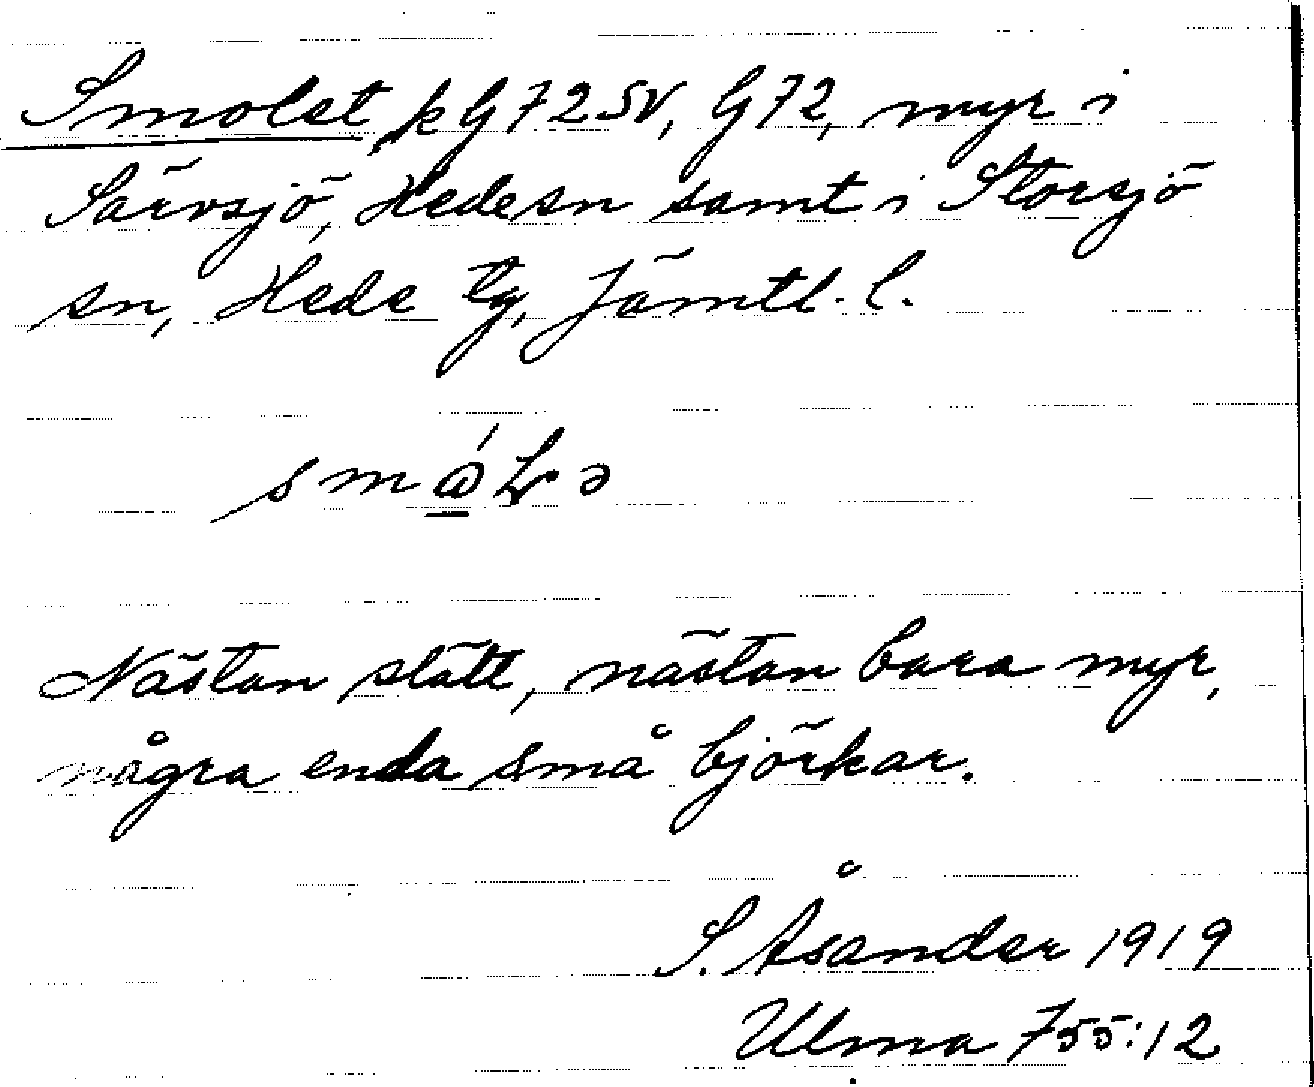 Smolet, k G72SV, G72, myr i
Särvsjö, Hede sn samt i Storsjö
sn, Hede tg, Jämtl. l.
Nästan slätt, nästan bara myr,
några enda små björkar.
S. Åsander 1919
Ulma 755:12